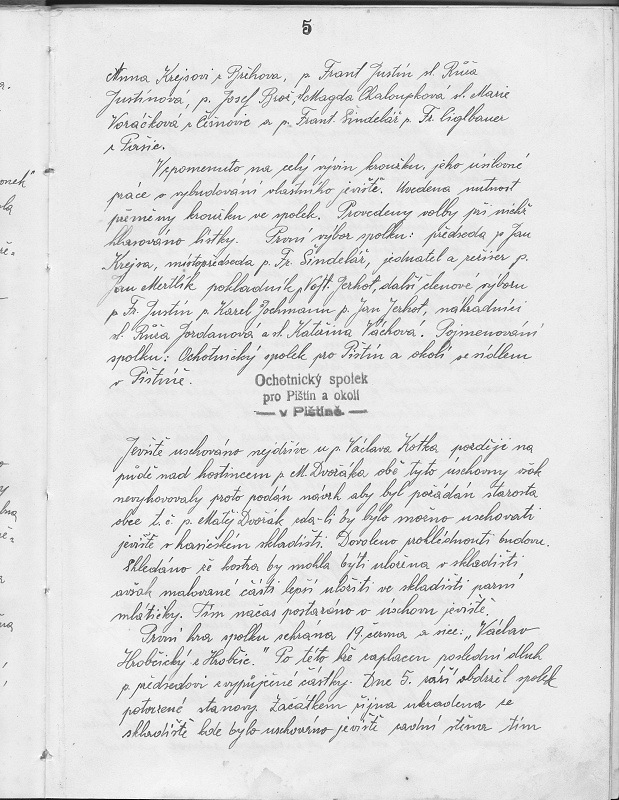 5
Anna Krejsovi z Břehova, p. Frant Justin sl. Růža
Justinová, p. Josef Brož, Magda Chaloupková sl. Marie
Voráčková z Češnovic a p. Frant. Šindelář p. Fr. Ciglbauer
z Pašic.
Vzpomenuto na celý vývin kroužku. jeho usilovné
práce o vybudování vlastního jeviště. Uvedena nutnost
přeměny kroužku ve spolek. Provedeny volby při nichž
hlasováno lístky. První výbor spolku: předseda p Jan
Krejsa, místopředseda p. Fr. Šindelář, jednatel a režiser p.
Jan Mertlík pokladník p. Vojt. Jerhot, další členové výboru
p Fr. Justin p Karel Jochmann p. Jan Jerhot, náhradníci
sl. Růža Jordanová a sl. Kateřina Váchová. Pojmenování
spolku: Ochotnický spolek pro Pištín a okolí se sídlem
v Pištíně.
Ochotnický spolek
pro Pištín a okolí
— v Pištíně —
Jeviště uschováno nejdříve u p. Václava Kotka později na
půdě nad hostincem p. M. Dvořáka obě tyto úschovny však
nevyhovovaly proto podán návrh aby byl požádán starosta
obce t. č. p. Matěj Dvořák zda-li by bylo možno uschovati
jeviště v hasičském skladišti. Dovoleno prohlédnouti budovu.
Shledáno že kostra by mohla býti uložena v skladišti
avšak malované části lepší uložiti ve skladišti parní
mlátičky. Tím načas postaráno o úschovu jeviště.
První hra spolku sehrána 19. června a sice: „Václav
Hrobčický z Hrobčic." Po této hře zaplacen poslední dluh
p. předsedovi z vypůjčené částky. Dne 5. září obdržel spolek
potvrzené stanovy. Začátkem října ukradena ze
skladiště kde bylo uschováno jeviště zadní stěna tím